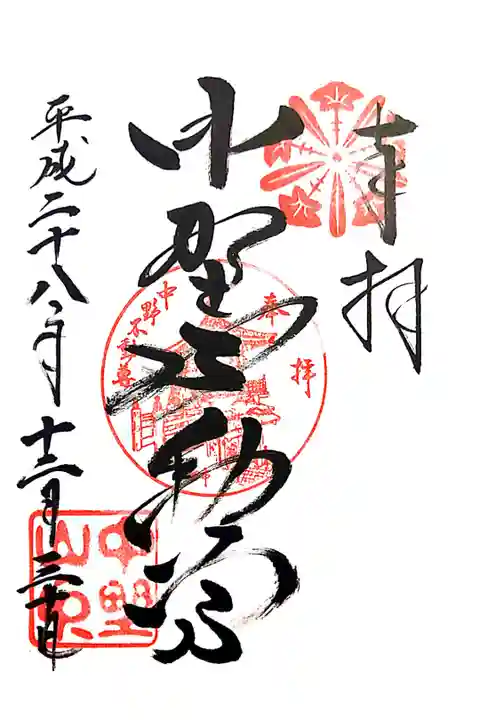 奉拝
中野不動尊
平成二十八年十二月三十日
奉拝
中野不動尊
中野